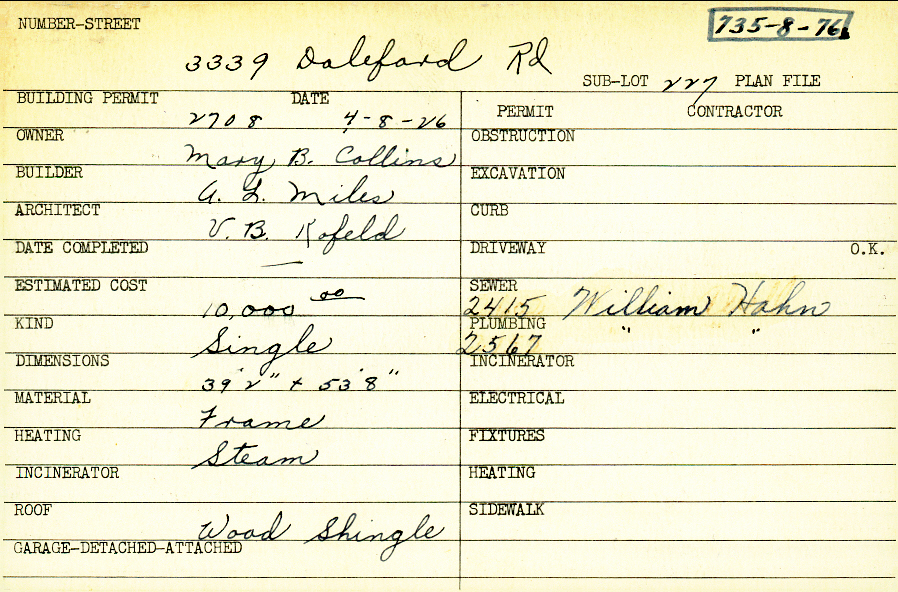 NUMBER-STREET
735-8-76
3339 Daleford Rd
SUB-LOT 227 PLAN FILE
BUILDING PERMIT DATE
2708 4-8-26
OWNER
Mary B. Collins
BUILDER
A. L. Miles
ARCHITECT
V. B. Kofeld
DATE COMPLETED
—
ESTIMATED COST
10,000 00
KIND
Single
DIMENSIONS
39'2" + 53'8"
MATERIAL
Frame
HEATING
Steam
INCINERATOR
ROOF
Wood Shingle
GARAGE-DETACHED-ATTACHED
PERMIT CONTRACTOR
OBSTRUCTION
EXCAVATION
CURB
DRIVEWAY O.K.
SEWER
2415 William Hahn
PLUMBING " "
2567
INCINERATOR
ELECTRICAL
FIXTURES
HEATING
SIDEWALK